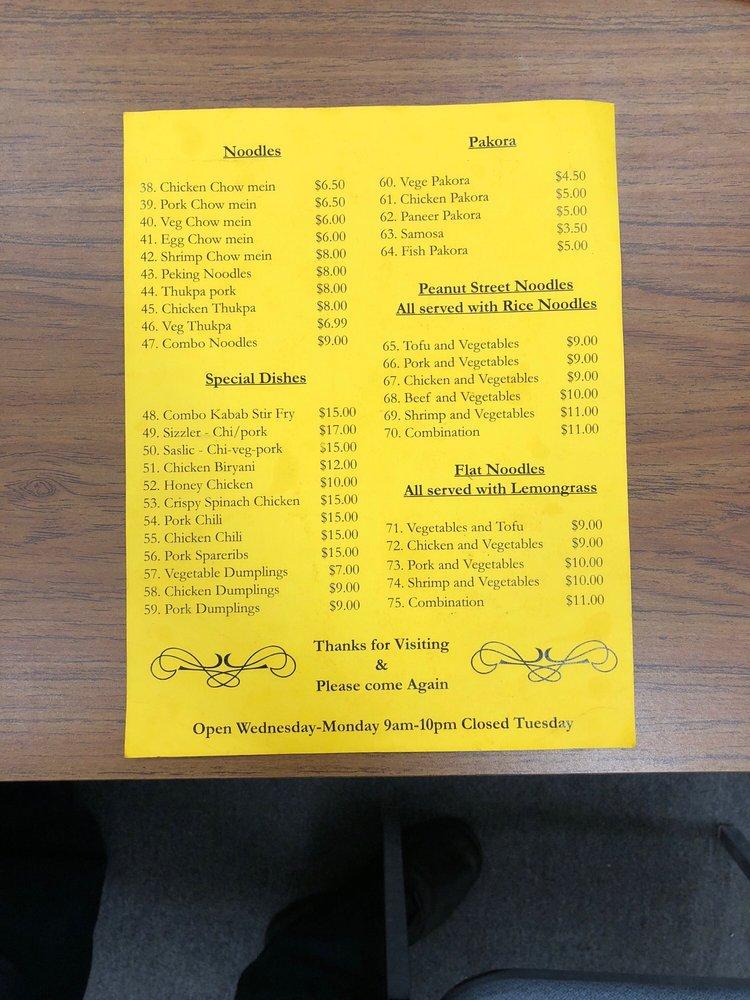 Noodles
38. Chicken Chow mein $6.50
39. Pork Chow mein $6.50
40. Veg Chow mein $6.00
41. Egg Chow mein $6.00
42. Shrimp Chow mein $8.00
43. Peking Noodles $8.00
44. Thukpa pork $8.00
45. Chicken Thukpa $8.00
46. Veg Thukpa $6.99
47. Combo Noodles $9.00
Special Dishes
48. Combo Kabab Stir Fry $15.00
49. Sizzler - Chi/pork $17.00
50. Saslic - Chi-veg-pork $15.00
51. Chicken Biryani $12.00
52. Honey Chicken $10.00
53. Crispy Spinach Chicken $15.00
54. Pork Chili $15.00
55. Chicken Chili $15.00
56. Pork Spareribs $15.00
57. Vegetable Dumplings $7.00
58. Chicken Dumplings $9.00
59. Pork Dumplings $9.00
Pakora
60. Vege Pakora $4.50
61. Chicken Pakora $5.00
62. Paneer Pakora $5.00
63. Samosa $3.50
64. Fish Pakora $5.00
Peanut Street Noodles
All served with Rice Noodles
65. Tofu and Vegetables $9.00
66. Pork and Vegetables $9.00
67. Chicken and Vegetables $9.00
68. Beef and Vegetables $10.00
69. Shrimp and Vegetables $11.00
70. Combination $11.00
Flat Noodles
All served with Lemongrass
71. Vegetables and Tofu $9.00
72. Chicken and Vegetables $9.00
73. Pork and Vegetables $10.00
74. Shrimp and Vegetables $10.00
75. Combination $11.00
Thanks for Visiting
&
Please come Again
Open Wednesday-Monday 9am-10pm Closed Tuesday